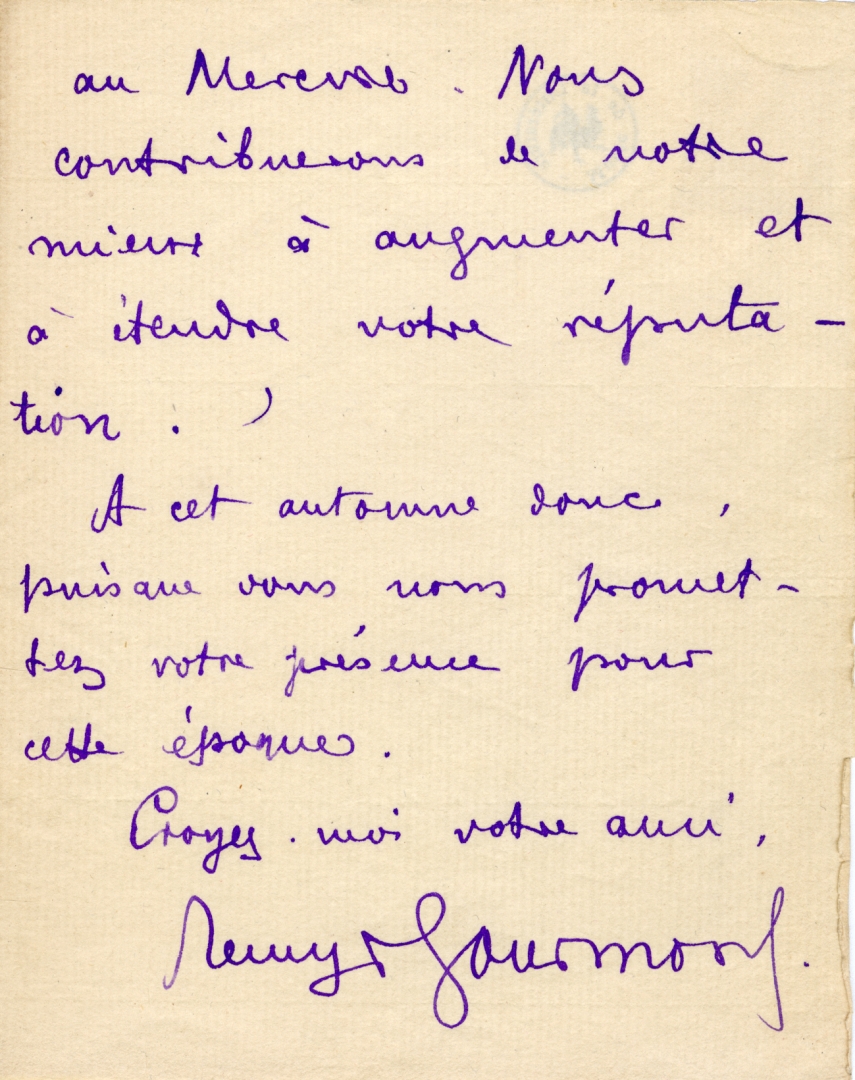 au Mercure. Nous
contribuerons de notre
mieux à augmenter et
à étendre votre réputa-
tion.
A cet automne donc,
puisque vous nous promet-
tez votre présence pour
cette époque.
Croyez-moi votre ami,
Remy de Gourmont.